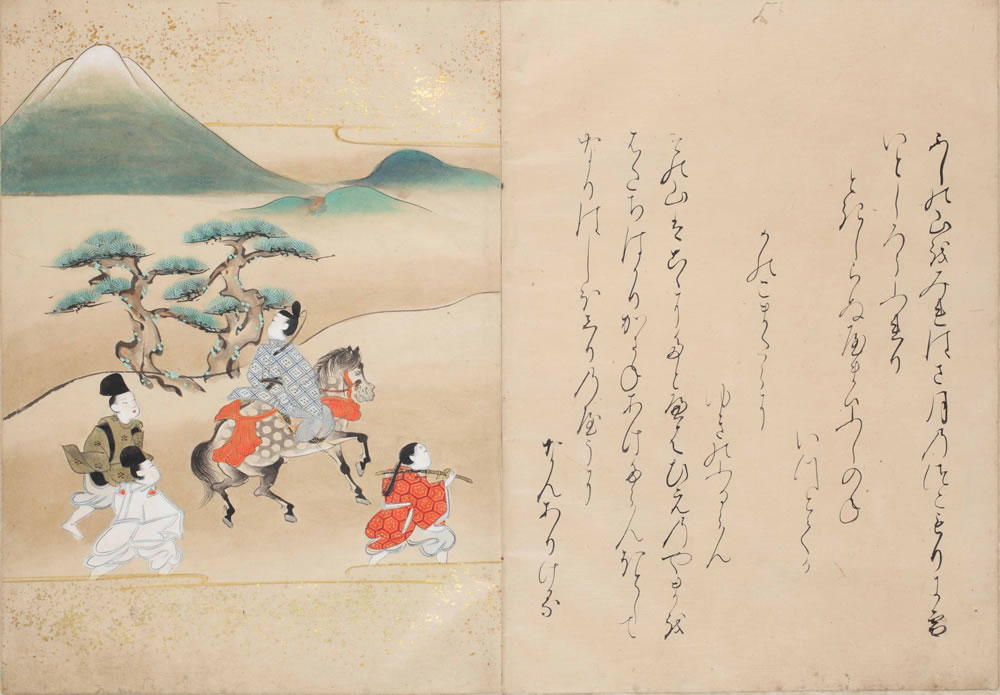 ふしの山をみれはさ月のつこもりに雪
いとしろうふれり
ときしらぬやまはふしのね
いつとてか
かのこまたらに
ゆきのふるらん
その山はこゝにたとへはひえのやまを
はたちはかりかさねあけたらんほとして
なりはしほしりのやうに
なんありける